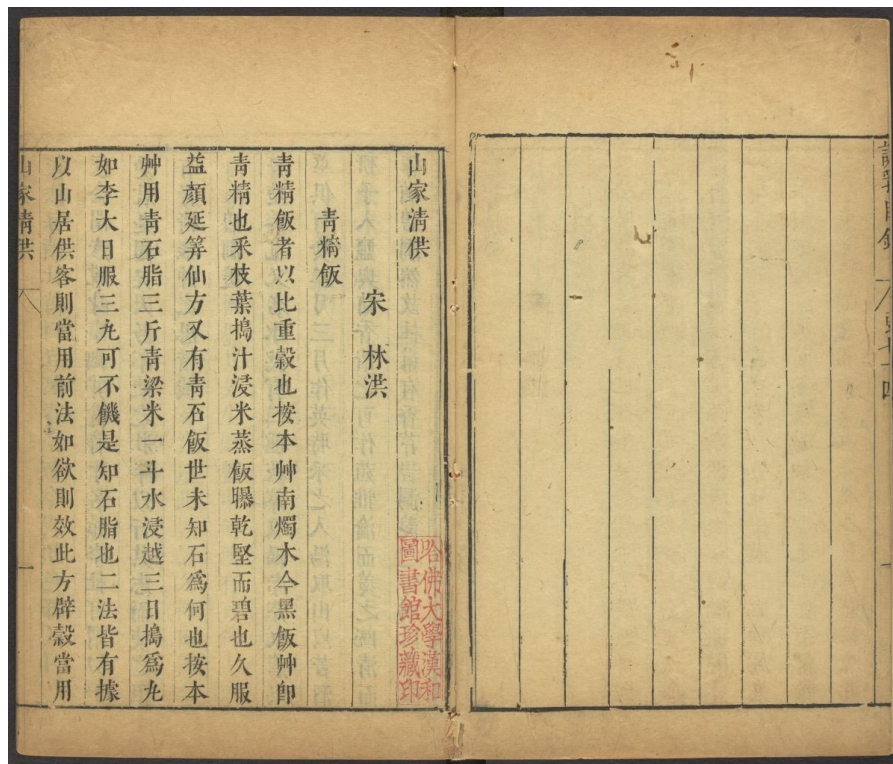 山家清供
宋　林洪
青精飯
青精飯者以比重穀也按本艸南燭木今黑飯艸卽
青精也采枝葉搗汁浸米蒸飯曝乾堅而碧也久服
益顏延筭仙方又有青石飯世未知石爲何也按本
艸用青石脂三斤青粱米一斗水浸越三日搗爲丸
如李大日服三丸可不饑是知石脂也二法皆有據
以山居供客則當用前法如欲則效此方辟穀當用
山家清供
一
哈佛大學漢和
圖書館珍藏印